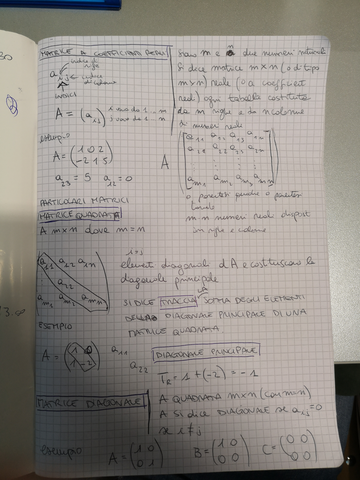 MATRICE A COEFFICIENTI REALI
indice di riga
a ij
indice di colonna
INDICI
A = (a ij) i varia da 1 .. m
j varia da 1 .. n
esempio
A = (1 0 2
-2 1 5)
a23 = 5 a12 = 0
PARTICOLARI MATRICI
MATRICE QUADRATA
siano m e n due numeri naturali
si dice matrice m×n (o di tipo
m×n) reale (o a coefficienti
reali) ogni tabella costituita
da m righe e da n colonne
di numeri reali
A
a11 a12 a13 a1n
a21 a22 a23 a2n
am1 am2 am3 amn
o parentesi quadre o parentesi
tonde
m n numeri reali disposti
in righe e colonne
A m×n dove m=n
i=j
a11 a12 a1n
a22
am1 am2 amn
elementi diagonali di A e costituiscono la
diagonale principale
SI DICE TRACCIA LA SOMMA DEGLI ELEMENTI
DELLA DIAGONALE PRINCIPALE DI UNA
MATRICE QUADRATA
ESEMPIO
A = (1 0
1 -2) a11
a22
DIAGONALE PRINCIPALE
TR = 1 + (-2) = -1
MATRICE DIAGONALE
A QUADRATA m×n (con m=n)
A SI dice DIAGONALE se aij=0
se i≠j
esempio
A = (1 0
0 1) B = (1 0
0 0) C = (0 0
0 0)